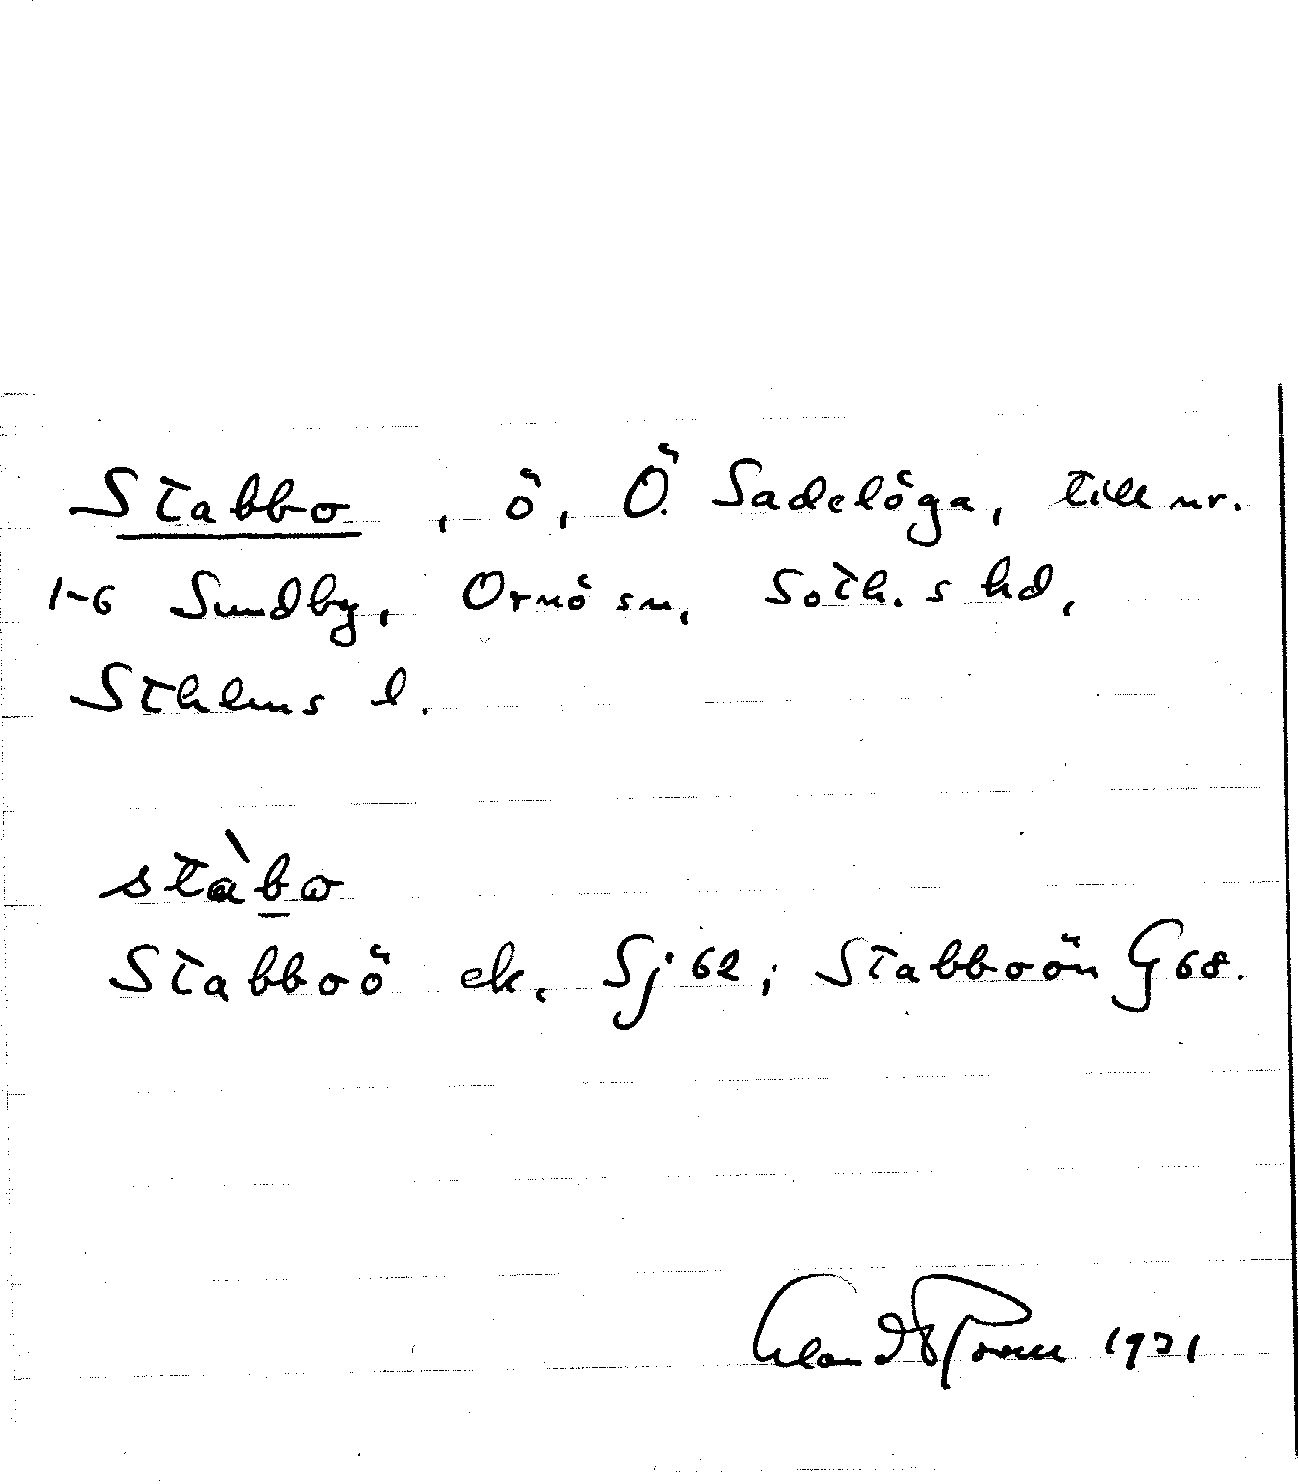 Stabbo, ö, Ö. Sadelöga, till nr.
1-6 Sundby, Ornö sn, Soth.s hd,
Sthlms l.
stàbo
Stabboö ek. Sj 62; Stabboön G 68.
1931